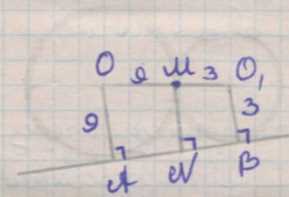 O 9 M 3 O₁
9 3
A N B